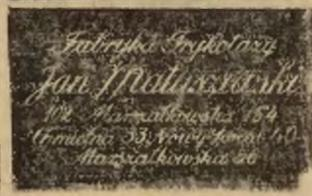 Fabryka Trykotaży
Jan Matuszewski
102 Marszałkowska 154
Chmielna 33, Nowy Świat 40
Marszałkowska 56